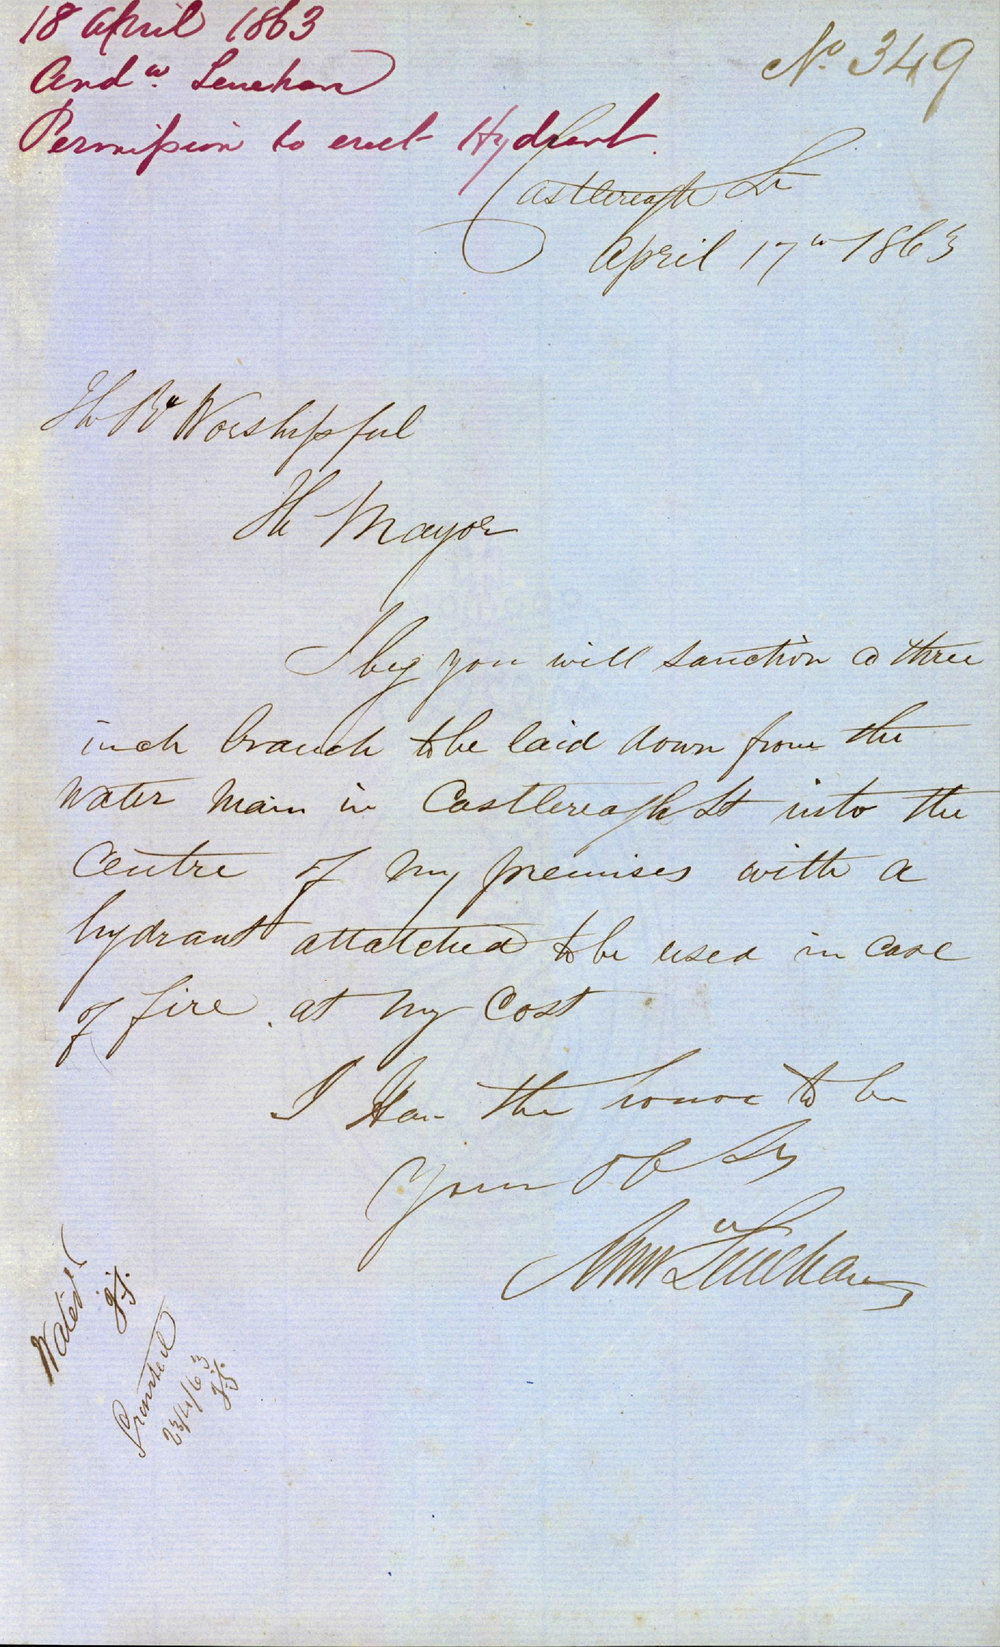 18 April 1863
Andw. Lenehan
Permission to erect Hydrant.
No. 349
Castlereagh St
April 17th 1863
The Rt Worshipful
The Mayor
I beg you will sanction a three
inch branch to be laid down from the
Water Main in Castlereagh St into the
Centre of my premises with a
hydrant attatched to be used in case
of fire. at my Cost
I Have the honor to be
Your Ob Sv
Andw Lenehan
Water
J.S.
Granted
23/4/63
J.S.